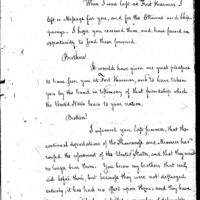 When I was last at Fort Harmar, I
left a Message for you, and for the Ottawas and Chip-
-peways. I hope you received them, and have found an
opportunity to send them forward.
Brothers!
It would have given me great pleasure
to have seen you at Fort Harmar, and to have taken
you by the hand in testimony of that friendship which
the United States bears to your nation.
Brothers!
I informed you last summer, that the
continual depredations of the Shawanese and Miamies had
the United States, and that they would
no longer bear them. You know my brothers that
but because they were not
entirely, it has had no effect upon them; and they have